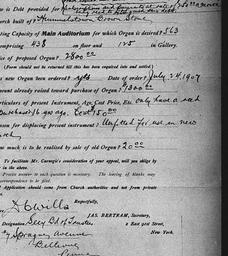 is Debt provided for
urch built of Hummelstown Brown Stone
ting Capacity of Main Auditorium for which Organ is desired? 563
mprising 438 on floor and 125 in Gallery.
e of proposed Organ? 2800.00
(Form should not be returned till this has been enquired into and settled.)
s new Organ been ordered? yes Date of order? July 24, 1907
ount already raised toward purchase of Organ? 1300.00
rticulars of present Instrument, Age, Cost Price, Etc. only have a reed
Purchased 16 yrs ago. Cost 150.00
eason for displacing present instrument? Unfitted for use in new
church
ow much is to be realized by sale of old Organ? 20.00
To facilitate Mr. Carnegie's consideration of your appeal, will you oblige by
in the above.
Precise answer to each question is necessary. The leaving of blanks may
correspondence to be filed.
Application should come from Church authorities and not from private
Respectfully,
JAS. BERTRAM, Secretary,
Designation Secy Bd of Trustees 2 East 91st street,
Sprague Avenue New York.
Bellevue
Penna